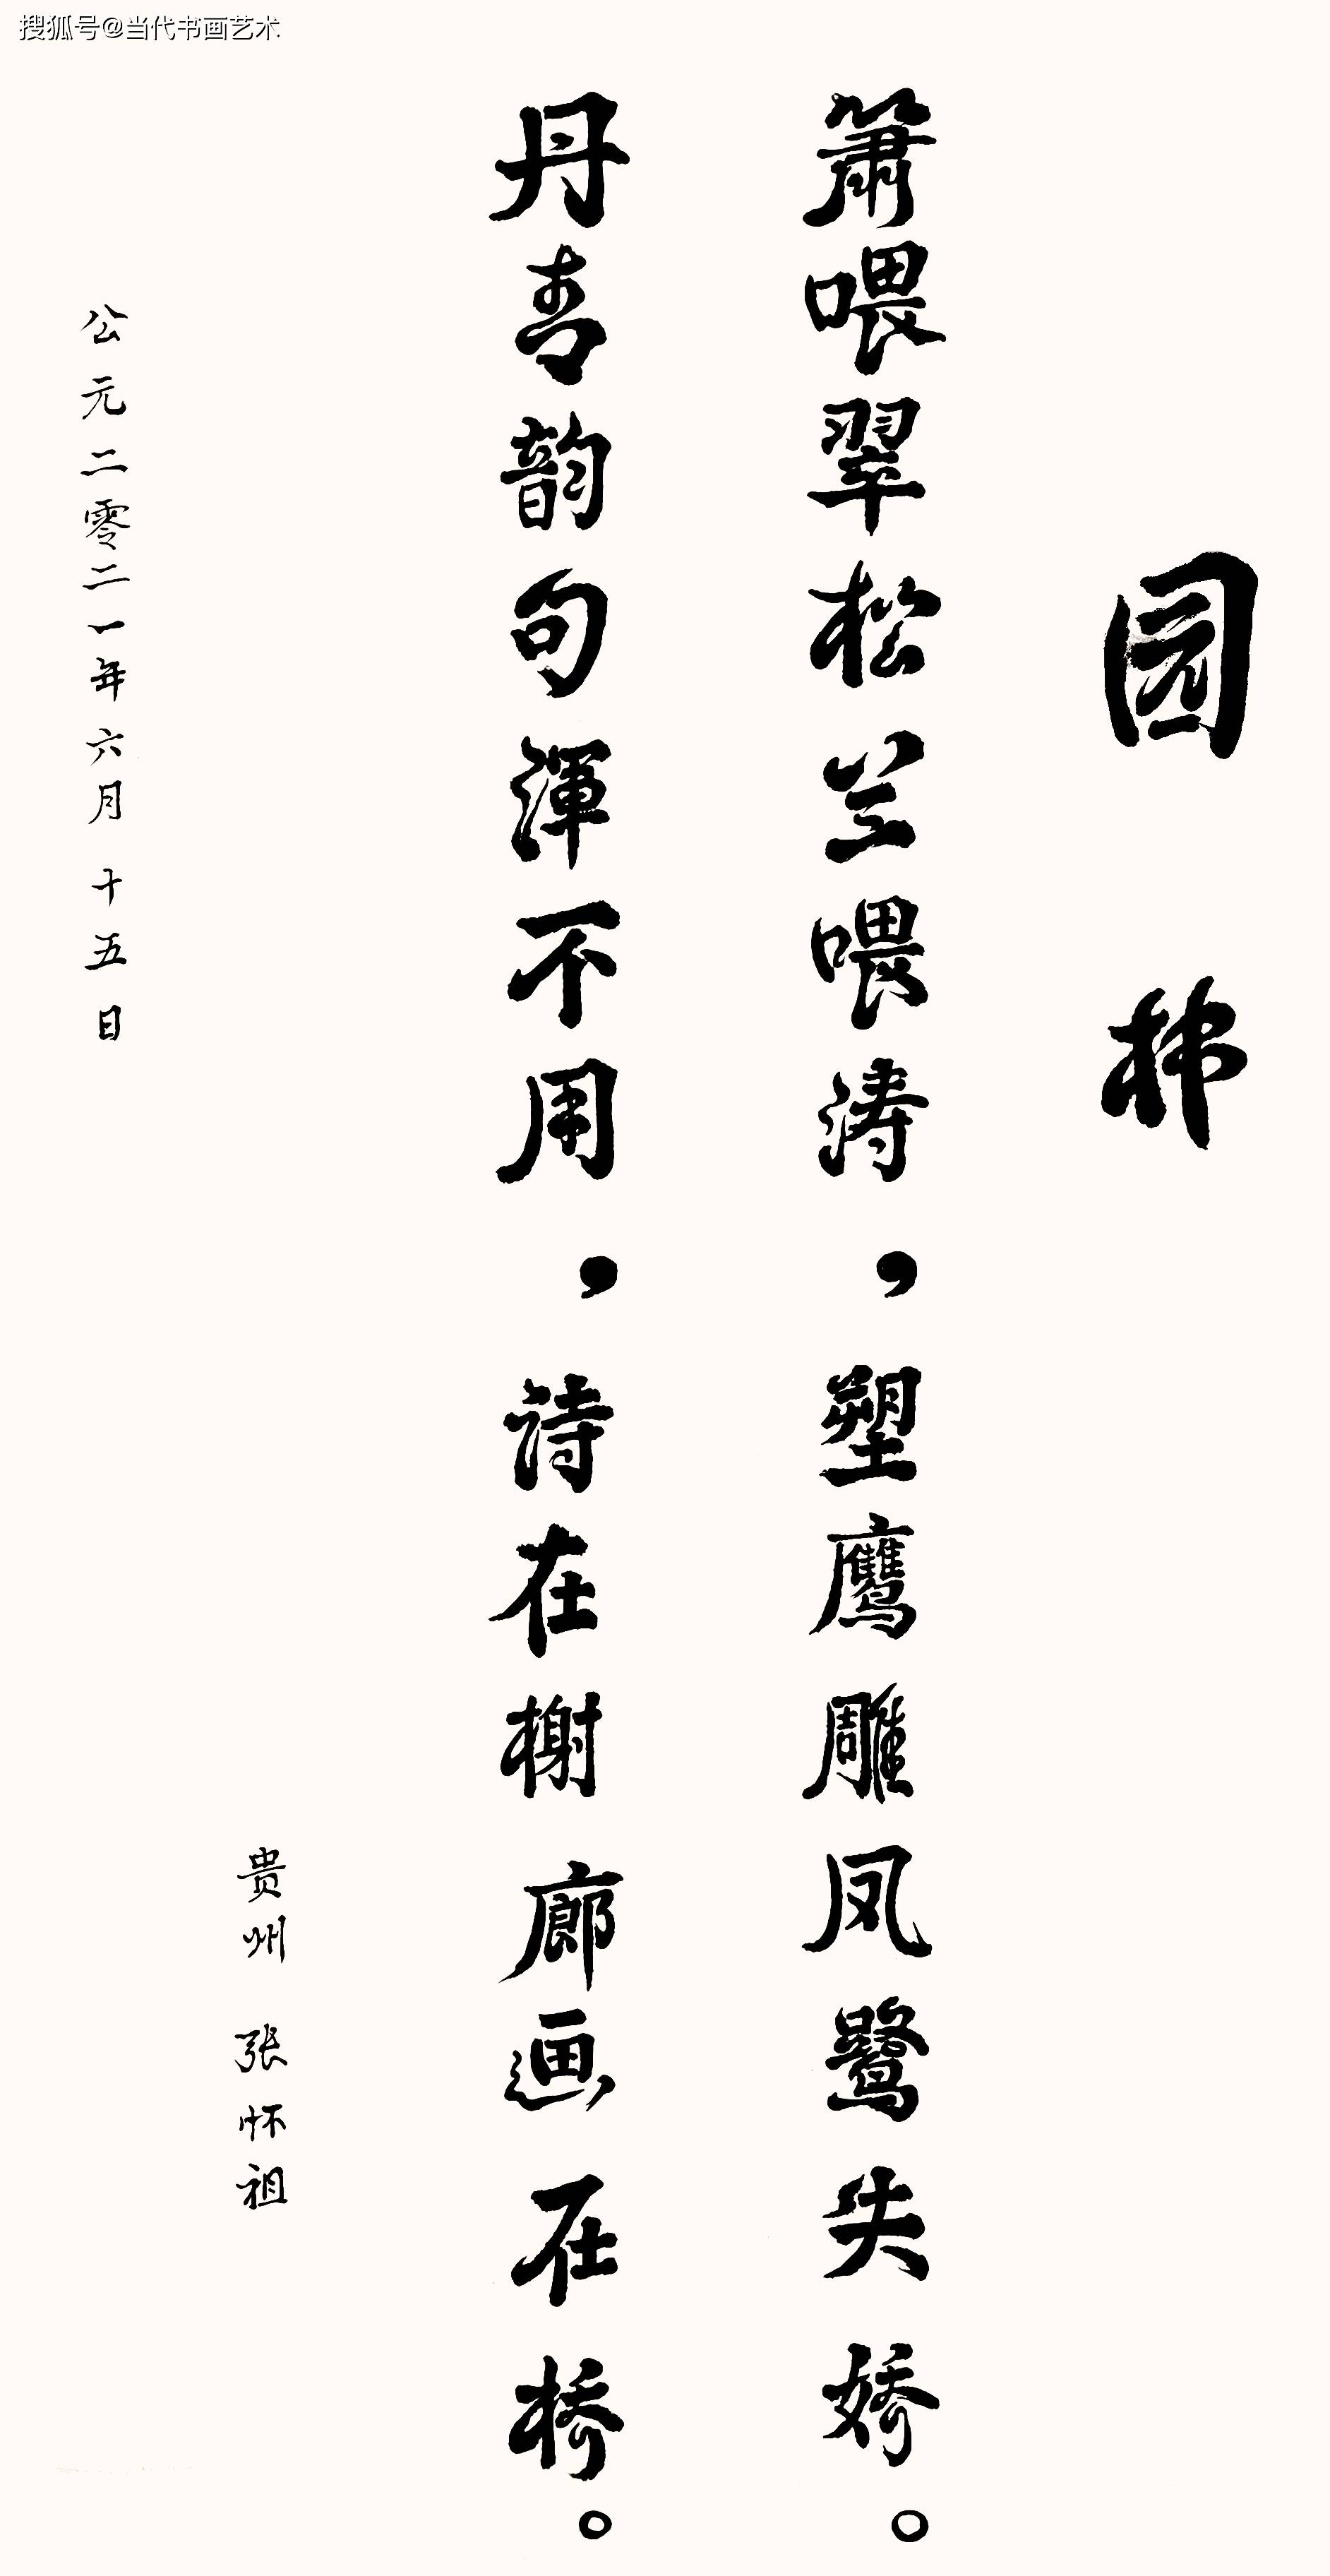 搜狐号@当代书画艺术
园林
箫喂翠松兰喂涛，塑鹰雕凤鹭失娇。
丹青韵句浑不用，诗在榭廊画在桥。
贵州 张怀祖
公元二零二一年六月十五日